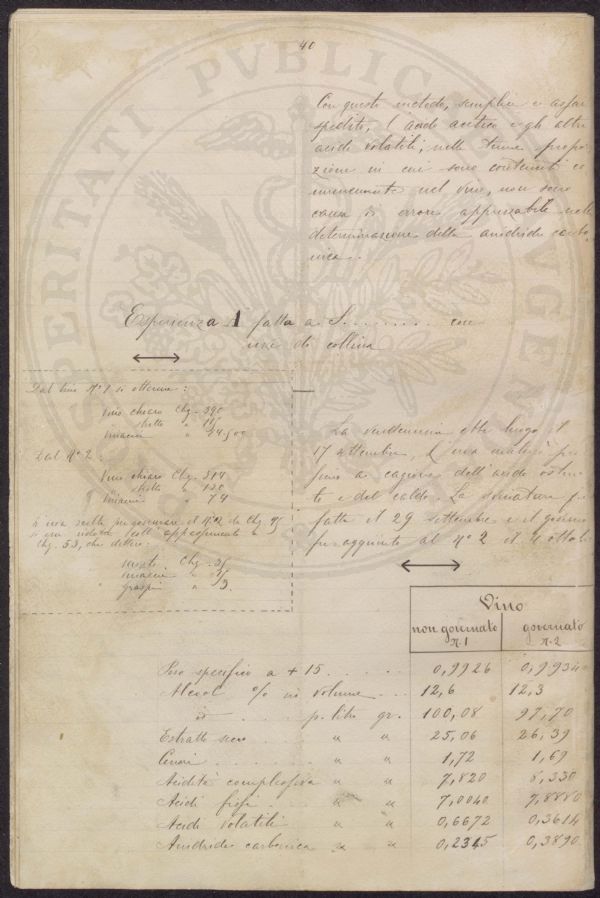 40
Con questo metodo, semplice e assai
spedito, l'acido acetico e gli altri
acidi volatili, nelle tenue propor
zione in cui sono contenuti co
munemente nel vino, non sono
causa di errore apprezzabile nella
determinazione della anidride carbo
nica.
Esperienza 1 fatta a S......... con
uve di collina
Dal tino Nº 1 si ottenne:
Vino chiaro Chg. 390
stretto "
Vinaccia " 74,500
Dal Nº 2:
Vino chiaro Chg. 314
stretto " 130
Vinaccia " 74
Chg. 53, che dettero:
mosto Chg.
vinaccia "
graspi " 3.
La vendemmia ebbe luogo il
17 settembre. L'uva maturò
a cagione dell'asciutto
e del caldo. La svinatura
fatta il 29 settembre e il governo
fu aggiunto al Nº 2 il
Vino
non governato governato
n. 1 n. 2
Peso specifico a + 15 . . . . 0,9926 0,9934
Alcool % in volume . . . 12,6 12,3
id . . . . p. litro gr. 100,08 97,70
Estratto secco " " 25,06 26,39
Ceneri . . . . . " " 1,72 1,69
Acidità complessiva " " 7,820 8,330
Acidi fissi . " " 7,0040 7,8880
Acidi volatili " " 0,6672 0,3614
Anidride carbonica " " 0,2315 0,3890